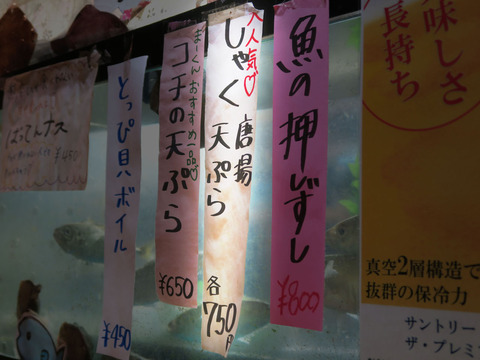 美味しさ
長持ち
真空2層構造で
抜群の保冷力
サントリー
ザ・プレミ
魚の押しずし
¥800
大人気♡
しゃく 唐揚
天ぷら
各
750円
まーくんおすすめ一品♡
コチの天ぷら
¥650
とっぴ貝ボイル
¥450
ばってんナス
¥450